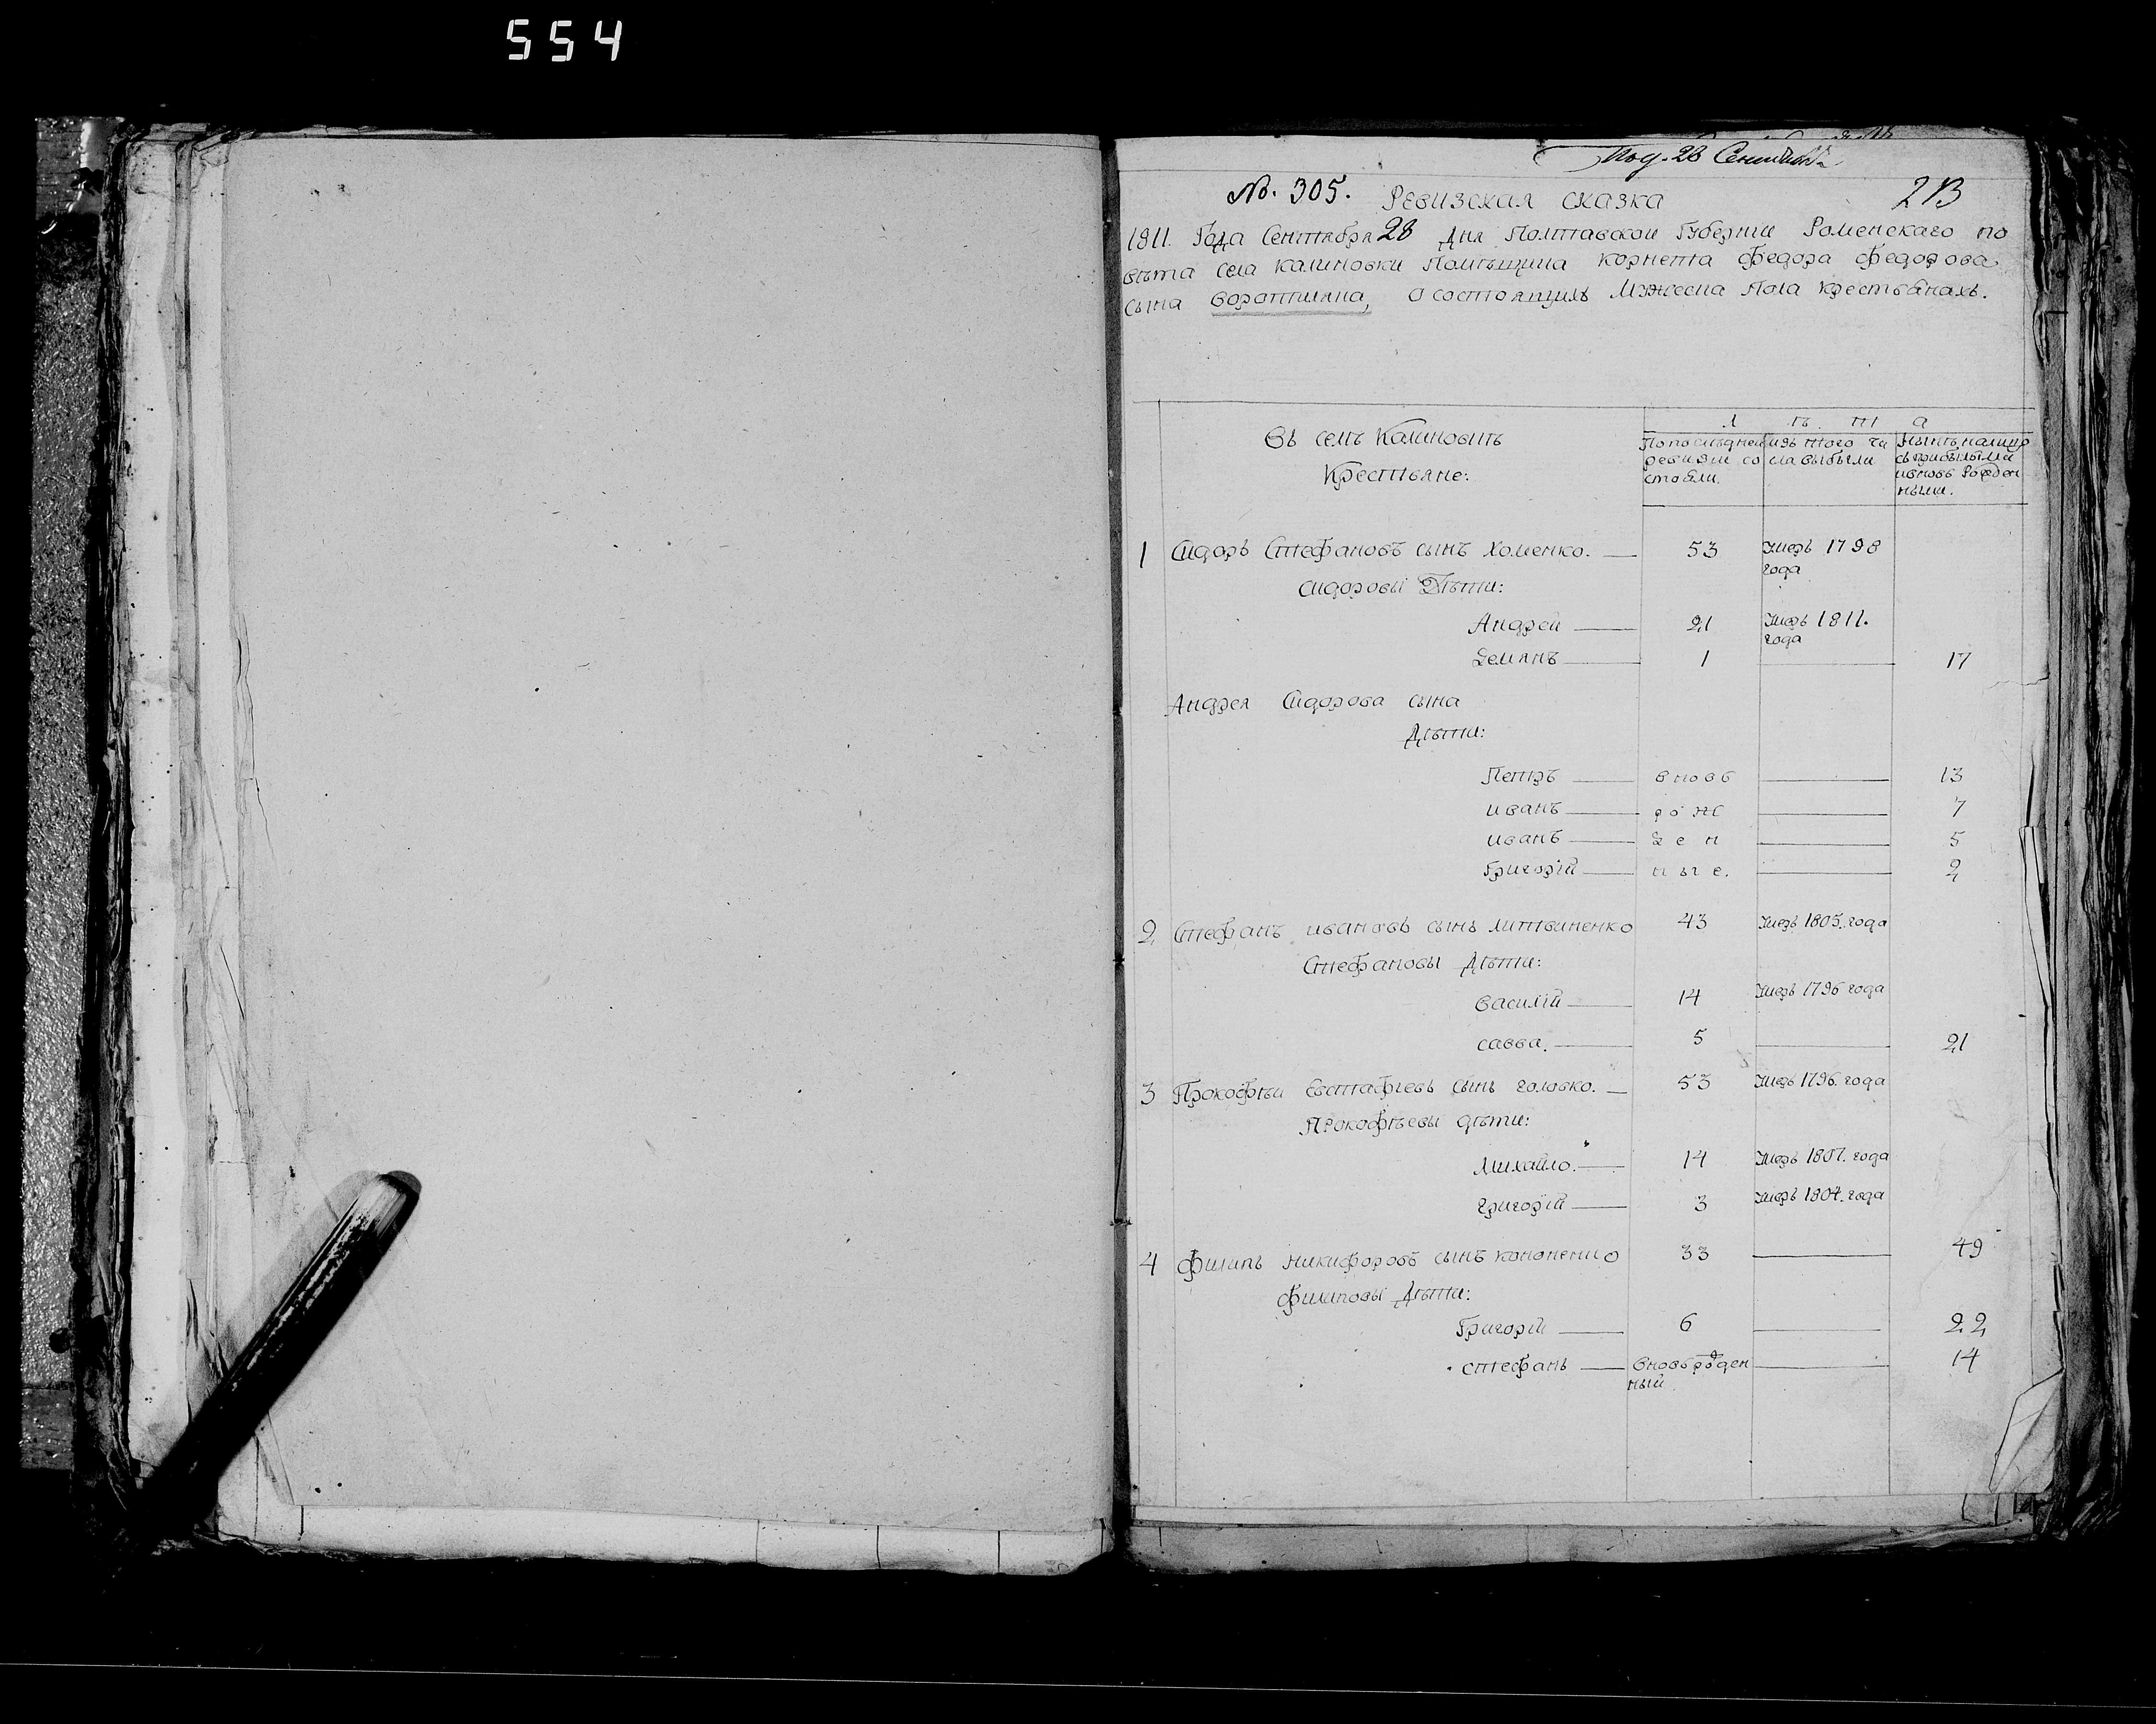 554
Под. 28 Сентября
№. 305. Ревизская сказка 213
1811. Года Сентября 28 дня Полтавской Губернии Роменскаго по
вѣта села Калиновки Помѣщика корнета Федора Федорова
сына воропиляна, о состоящихъ Мужеска пола крестьянахъ.
Л ѣ т а
Въ селѣ Калиновкѣ
Крестьяне:
По последней ревизии состояли.
изъ того числа выбыли
Нынѣ на лицо съ прибылыми и вновь рожденными.
1 Сидоръ Стефановъ сынъ Хоменко. 53 Умеръ 1798 года
Сидоровы Дѣти:
Андрей 21 Умеръ 1811. года
Демянъ 1 17
Андрея Сидорова сына
Дѣти:
Петръ вновь 13
иванъ рож 7
иванъ ден 5
Григорій ные. 2
2 Стефанъ ивановъ сынъ литвиненко 43 Умеръ 1805. года
Стефановы Дѣти:
василій 14 Умеръ 1796 года
савва. 5 21
3 Прокофѣи Евстафіевъ сынъ головко. 53 Умеръ 1796. года
Прокофѣевы дѣти:
Михайло. 14 Умеръ 1807. года
григорій 3 Умеръ 1804. года
4 филипъ никифоровъ сынъ кононенко 33 49
филиповы Дѣти:
Григорій 6 22
стефанъ вновь рожден 14
ный